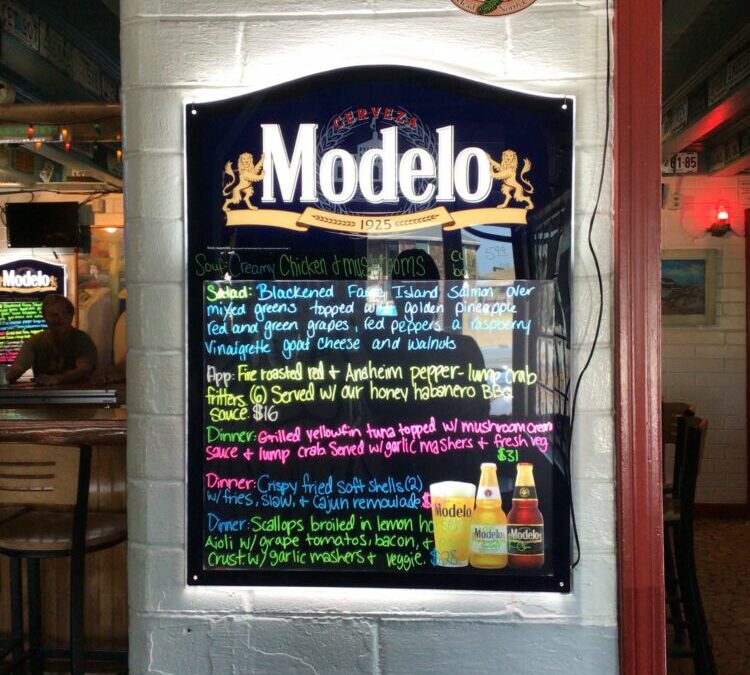 CERVEZA
Modelo
1925
Soup: Creamy Chicken & mushrooms cup 5.99
Salad: Blackened Faroe Island Salmon over
mixed greens topped with golden pineapple
red and green grapes, red peppers a raspberry
Vinaigrette goat cheese and walnuts
App: Fire roasted red + Anaheim pepper-lump crab
fritters (6) Served w/ our honey habanero BBQ
sauce. $16
Dinner: Grilled yellowfin tuna topped w/ mushroom cream
sauce + lump crab Served w/ garlic mashers + fresh veg
$31
Dinner: Crispy fried soft shells (2)
w/ fries, slaw, + Cajun remoulade $
Dinner: Scallops broiled in lemon
Aioli w/ grape tomatos, bacon, +
Crust w/ garlic mashers + veggie. $28
Modelo
Modelo
Modelo
Modelo
61-85